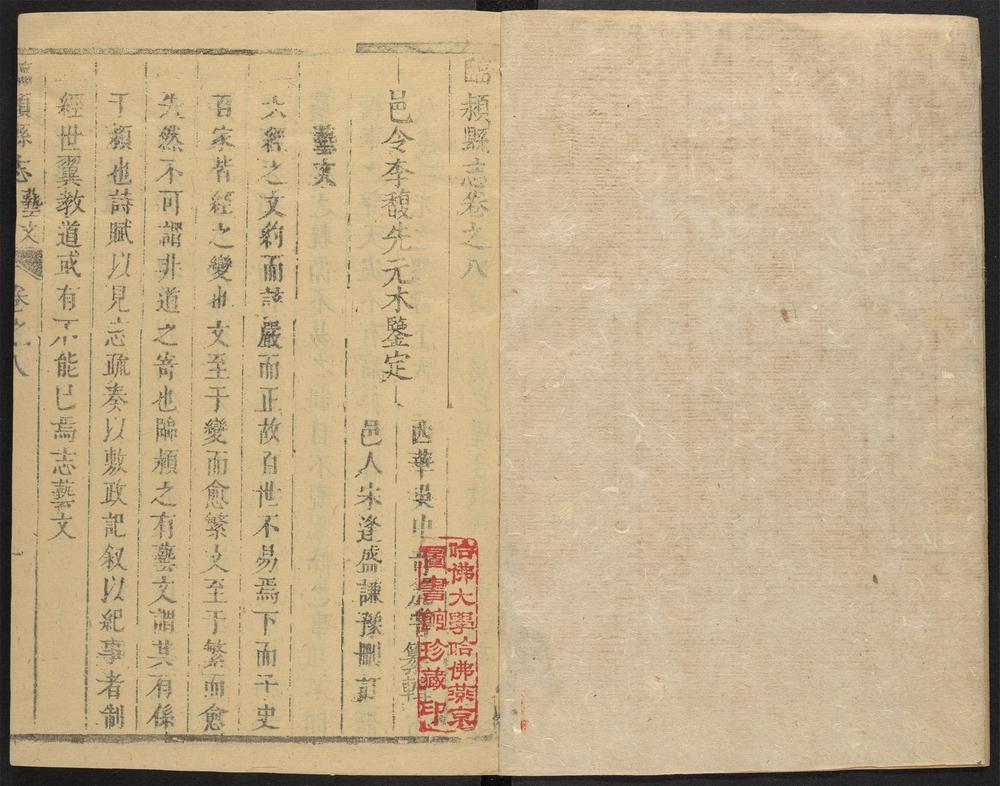 臨潁縣志卷之八
邑令李馥先元木鑒定
西華吳中奇
纂輯
邑人宋逢盛謙豫刪訂
藝文
六經之文約而該嚴而正故百世不易焉下而子史
百家皆經之變也文至于變而愈繁文至于繁而愈
失然不可謂非道之寄也臨潁之有藝文謂其有係
于潁也詩賦以見志疏奏以敷政記叙以紀事者制
經世翼教道或有不能已焉志藝文
臨潁縣志 藝文 卷之八
哈佛大學哈佛燕京
圖書館珍藏印